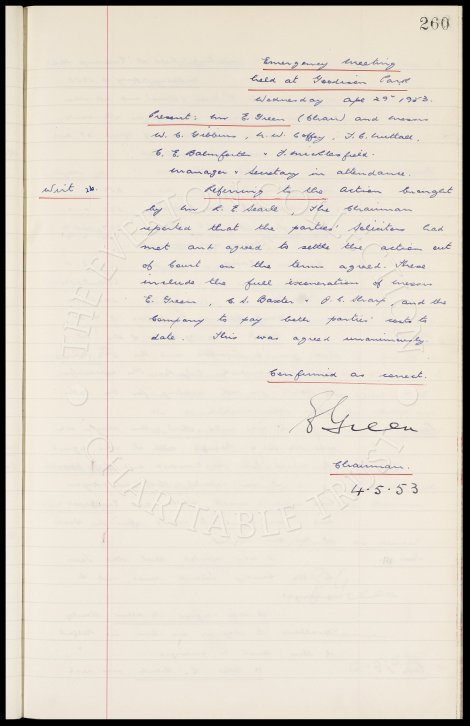 260
Emergency Meeting
held at Goodison Park
Wednesday Apl 29th 1953.
Present: Mr E. Green (Chair) and Messrs
W. C. Gibbins, W. Coffey, T. C. Nuttall,
C. E. Balmforth & J. Micklesfield.
Manager & Secretary in attendance.
Writ Referring to the Action brought
by Mr R. E. Searle, The Chairman
reported that the parties' Solicitors had
met and agreed to settle the action out
of Court on the terms agreed. These
include the full exoneration of Messrs
E. Green, C. S. Baxter & J. C. Sharp, and the
Company to pay both parties' costs to
date. This was agreed unanimously.
Confirmed as correct.
E Green
Chairman.
4.5.53
© THE EVERTON COLLECTION
CHARITABLE TRUST